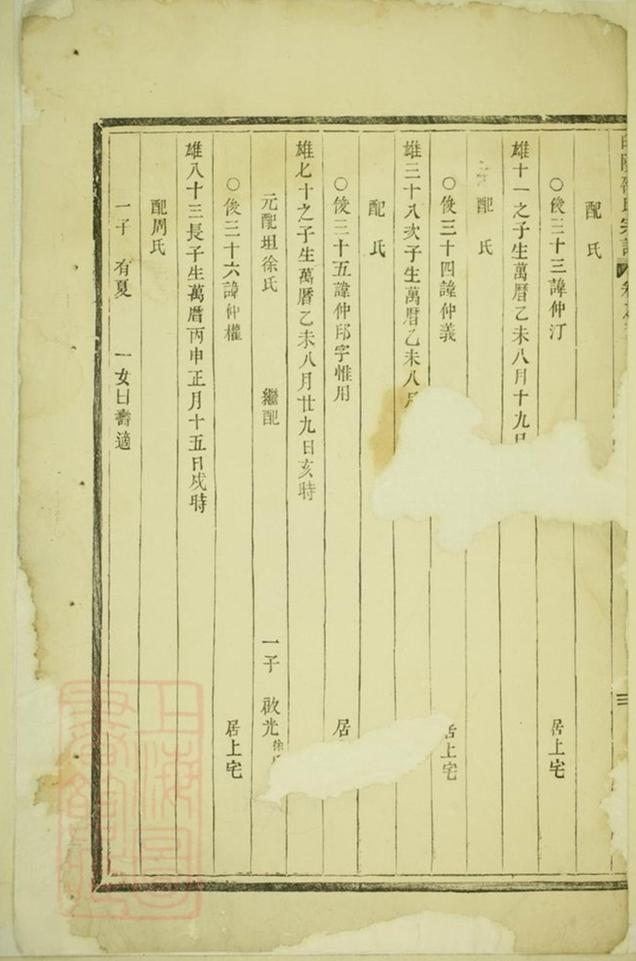 氏宗譜 卷之
配氏
○俊三十三諱仲汀 居上宅
雄十一之子生萬曆乙未八月十九日
配氏
○俊三十四諱仲義 居上宅
雄三十八次子生萬曆乙未八月
配氏
○俊三十五諱仲邱字惟用 居
雄七十之子生萬曆乙未八月廿九日亥時
元配坦徐氏 繼配 一子 啟光
○俊三十六諱仲權 居上宅
雄八十三長子生萬曆丙申正月十五日戌時
配周氏
一子 有夏 一女曰壽適